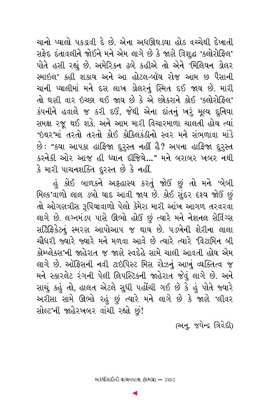 ચાનો પ્યાલો પકડાવી દે છે. એના અધઊઘડયા હોઠ વચ્ચેથી દેખાતી
સફેદ દંતાવલીને જોઈને મને એમ લાગે છે કે જાણે વિશુદ્ધ 'ક્લોરોફિલ'
પોતે હસી રહ્યું છે. અમેરિકન ઢબે કહીએ તો એને 'મિલિયન ડોલર
સ્માઇલ' કહી શકાય અને આ હોટલ-બૉય રોજ આમ છ પૈસાની
ચાની પ્યાલીમાં મને દસ લાખ ડોલરનું સ્મિત દઈ જાય છે. મારી
તો ઘણી વાર ઇચ્છા થઈ જાય છે કે એ છોકરાને કોઈ 'ક્લોરોફિલ'
કંપનીને હવાલે જ કરી દઉં, જેથી એના દાંતનું ખરું મૂલ્ય દુનિયા
સમક્ષ રજૂ થઈ શકે. અને આમ મારી વિચારમાળા ચાલતી હોય ત્યાં
'ઇથર'માં તરતો તરતો કોઈ કોકિલકંઠીનો સ્વર મને સંભળાવા માંડે
છે: "ક્યા આપકા હાજિમા દુરસ્ત નહીં હૈ? અપના હાજિમા દુરસ્ત
કરનેકી ઓર આજ હી ધ્યાન દીજિયે..." મને બરાબર ખબર નથી
કે મારી પાચનશક્તિ દુરસ્ત છે કે નહીં.
હું કોઈ બાળકને અટ્ટહાસ્ય કરતું જોઉં છું તો મને 'બેબી
મિલ્ક'વાળો લાલ ડબો યાદ આવી જાય છે. કોઈ સુંદર દૃશ્ય જોઉં છું
તો ઓગણત્રીસ રૂપિયાવાળો પેલો કૅમેરા મારી આંખ આગળ તરવરવા
લાગે છે. લગ્નમંડપ પાસે ઊભો હોઉં છું ત્યારે મને નેશનલ સેવિંગ્સ
સર્ટિફિકેટનું સ્મરણ આપોઆપ જ થાય છે. પડખેની શેરીના લાલા
ચૌધરી જ્યારે જ્યારે મને મળવા આવે છે ત્યારે ત્યારે 'વિટામિન બી
કોમ્પ્લેક્સ'ની જાહેરાત જ જાણે સ્વદેહે સામે ચાલી આવતી હોય એમ
લાગે છે. ઑફિસની નવી ટાઇપિસ્ટ મિસ રોઝનું આખું વ્યક્તિત્વ જ
મને સ્કારલેટ રંગની પેલી લિપસ્ટિકની જાહેરાત જેવું લાગે છે. અને
સાચું કહું તો, હાલત એટલે સુધી પહોંચી ગઈ છે કે હું પોતે જ્યારે
અરીસા સામે ઊભો રહું છું ત્યારે મને લાગે છે કે જાણે 'લીવર
સોલ્ટ'ની જાહેરખબર વાંચી રહ્યો છું!
(અનુ. જયેન્દ્ર ત્રિવેદી)